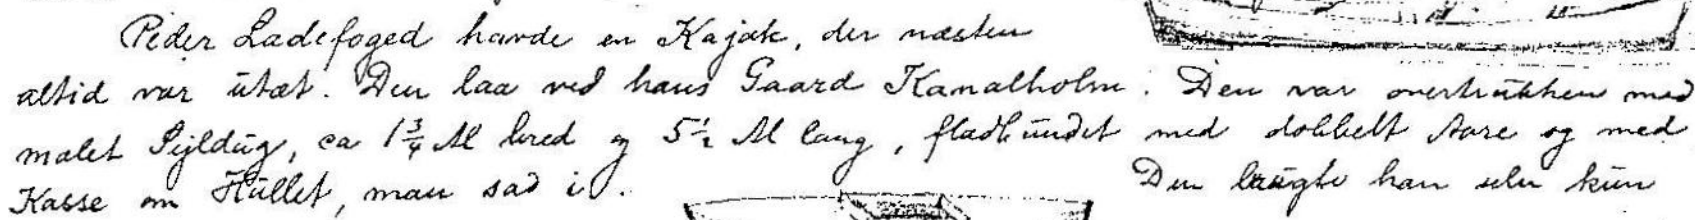 Peder Ladefoged havde en Kajak, der næsten
altid var utæt. Den laa ved hans Gaard Kanalholm. Den var overtrukken med
malet Sejldug, ca 1 3/4 Al bred og 5 1/2 Al lang, fladbundet med dobbelt Aare og med
Kasse om Hullet, man sad i. Den brugte han selv kun